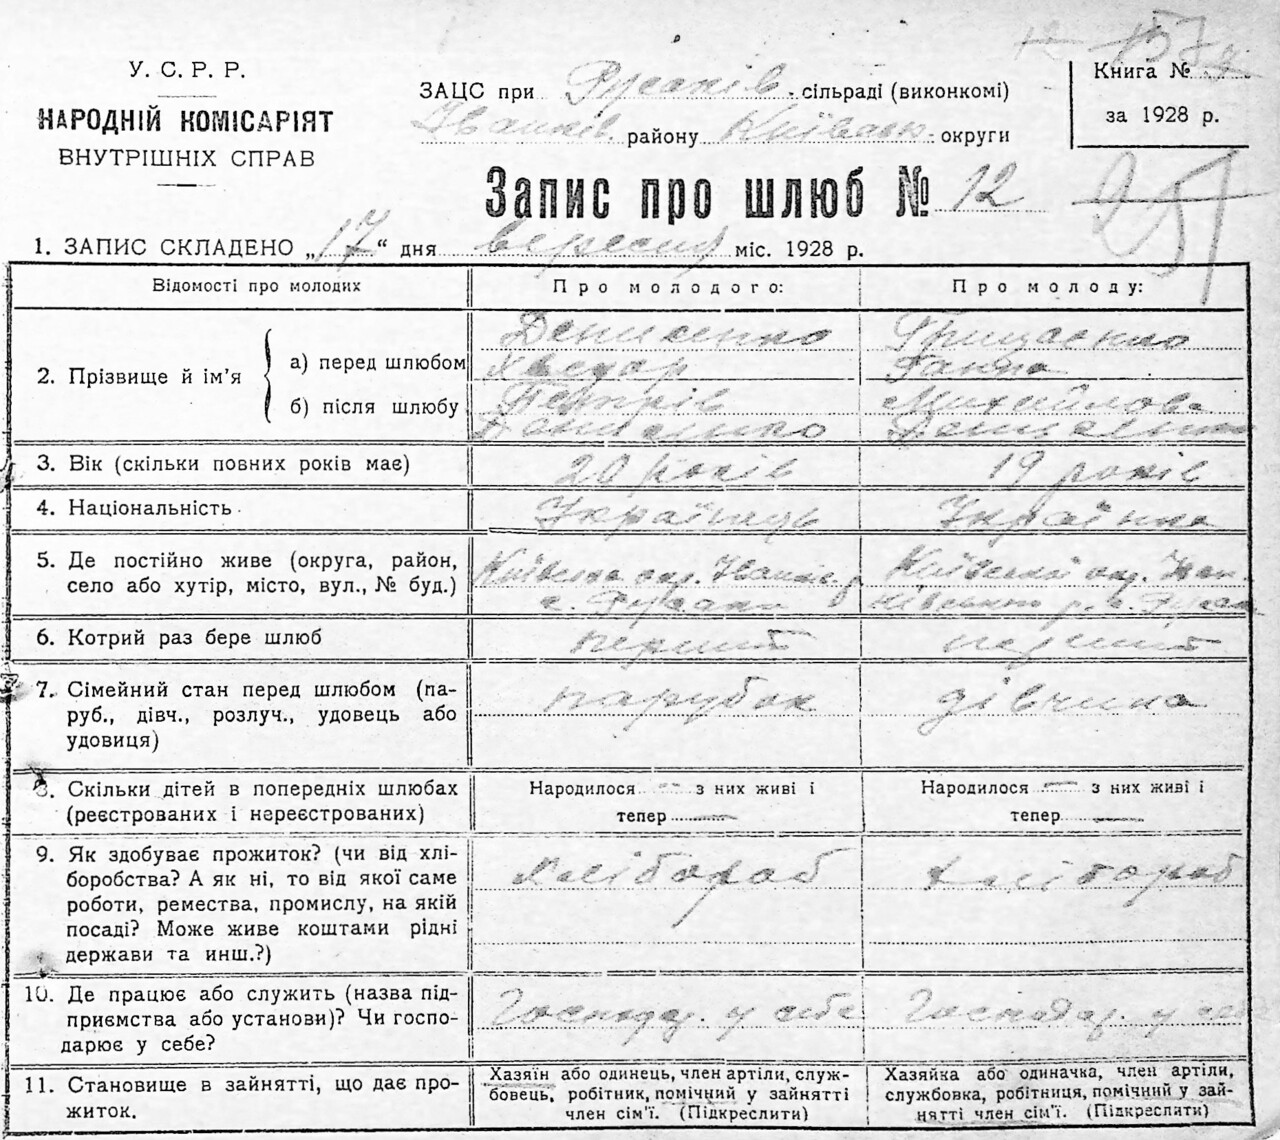 У. С. Р. Р.
НАРОДНІЙ КОМІСАРІЯТ
ВНУТРІШНІХ СПРАВ
ЗАЦС при Русаків сільраді (виконкомі)
Іванків. району Київською округи
Книга №
за 1928 р.
Запис про шлюб № 12
251
1. ЗАПИС СКЛАДЕНО „17“ дня вересня міс. 1928 р.
Відомості про молодих
Про молодого:
Про молоду:
2. Прізвище й ім’я
а) перед шлюбом
б) після шлюбу
Денисенко
Хведар
Петрів
Денисенко
Грищенко
Ганна
Михайлов.
Денисенко
3. Вік (скільки повних років має)
20 років
19 років
4. Національність
Українець
Українка
5. Де постійно живе (округа, район,
село або хутір, місто, вул., № буд.)
Київська окр. Іванк. р
с. Русаки
Київської окр. Іван-
ківського р. с. Руса
6. Котрий раз бере шлюб
перший
перший
7. Сімейний стан перед шлюбом (па-
руб., дівч., розлуч., удовець або
удовиця)
парубок
дівчина
8. Скільки дітей в попередніх шлюбах
(реєстрованих і нереєстрованих)
Народилося — з них живі і
тепер —
Народилося — з них живі і
тепер —
9. Як здобуває прожиток? (чи від хлі-
боробства? А як ні, то від якої саме
роботи, ремества, промислу, на якій
посаді? Може живе коштами рідні
держави та инш.?)
хлібороб
хлібороб
10. Де працює або служить (назва під-
приємства або установи)? Чи госпо-
дарює у себе?
Господар. у себе
Господар. у себе
11. Становище в зайнятті, що дає про-
житок.
Хазяїн або одинець, член артіли, служ-
бовець, робітник, помічний у зайнятті
член сім’ї. (Підкреслити)
Хазяйка або одиначка, член артіли,
службовка, робітниця, помічний у зай-
нятті член сім’ї. (Підкреслити)